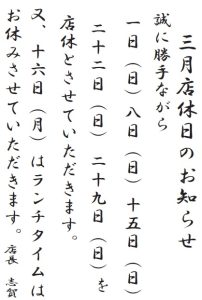 三月店休日のお知らせ
誠に勝手ながら
一日（日）八日（日）十五日（日）
二十二日（日）　二十九日（日）を
店休とさせていただきます。
又、十六日（月）はランチタイムは
お休みさせていただきます。　店長　志賀